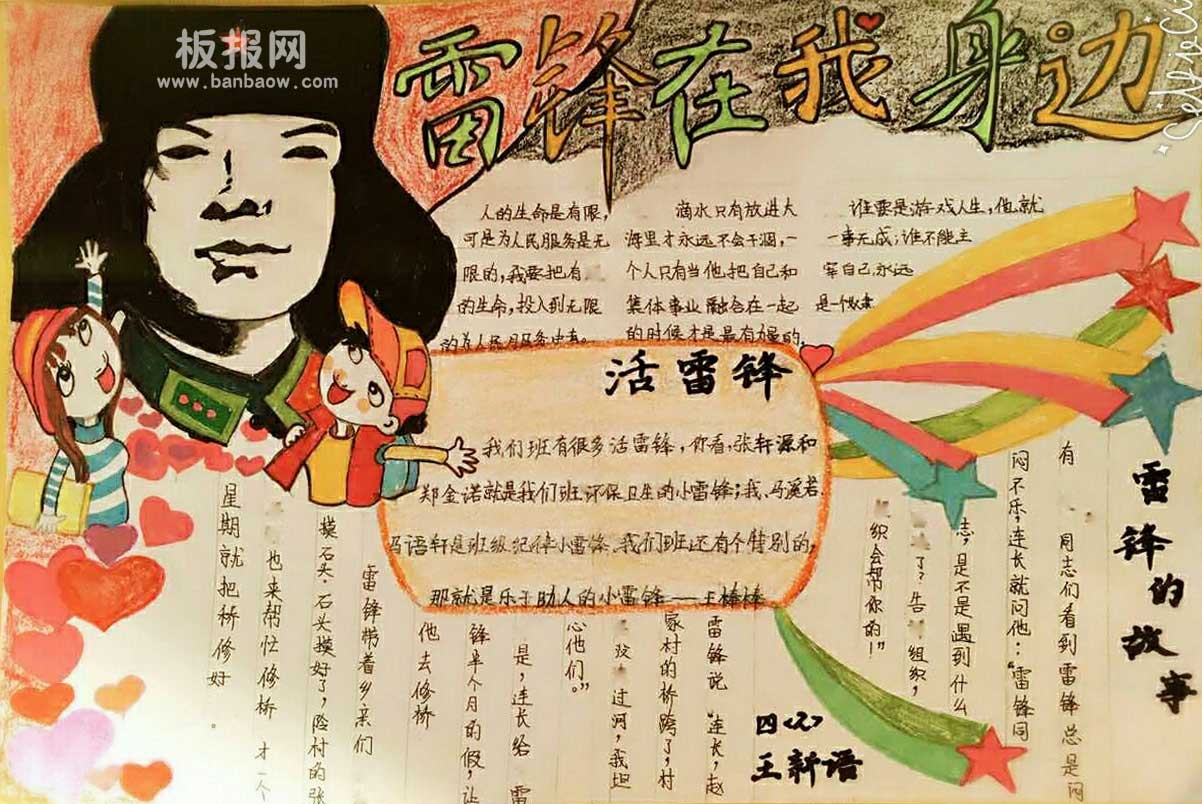 板报网
www.banbaow.com
雷锋在我身边
人的生命是有限,
可是为人民服务是无
限的,我要把有
的生命,投入到无限
的为人民服务中去。
滴水只有放进大
海里才永远不会干涸,一
个人只有当他把自己和
集体事业融合在一起
的时候才是最有力量的,
谁要是游戏人生,他就
一事无成;谁不能主
宰自己永远
是一个奴隶
活雷锋
我们班有很多活雷锋,你看,张轩源和
郑金诺就是我们班环保卫生的小雷锋;我、马溪若
马语轩是班级纪律小雷锋、我们班还有个特别的,
那就是乐于助人的小雷锋——王
雷锋的故事
有 同志们看到雷锋总是闷
闷不乐,连长就问他:“雷锋同
志,是不是遇到什么
了?告 组织,
织会帮你的!”
雷锋说 “连长,赵
家村的桥跨了,村
过河,我担
心他们。”
是,连长给 雷
锋半个月的假,让
他去修桥
雷锋带着乡亲们
摸石头.石头摸好了,险村的张
也来帮忙修桥 才一个
星期就把桥修好。
四〈2〉
王新语